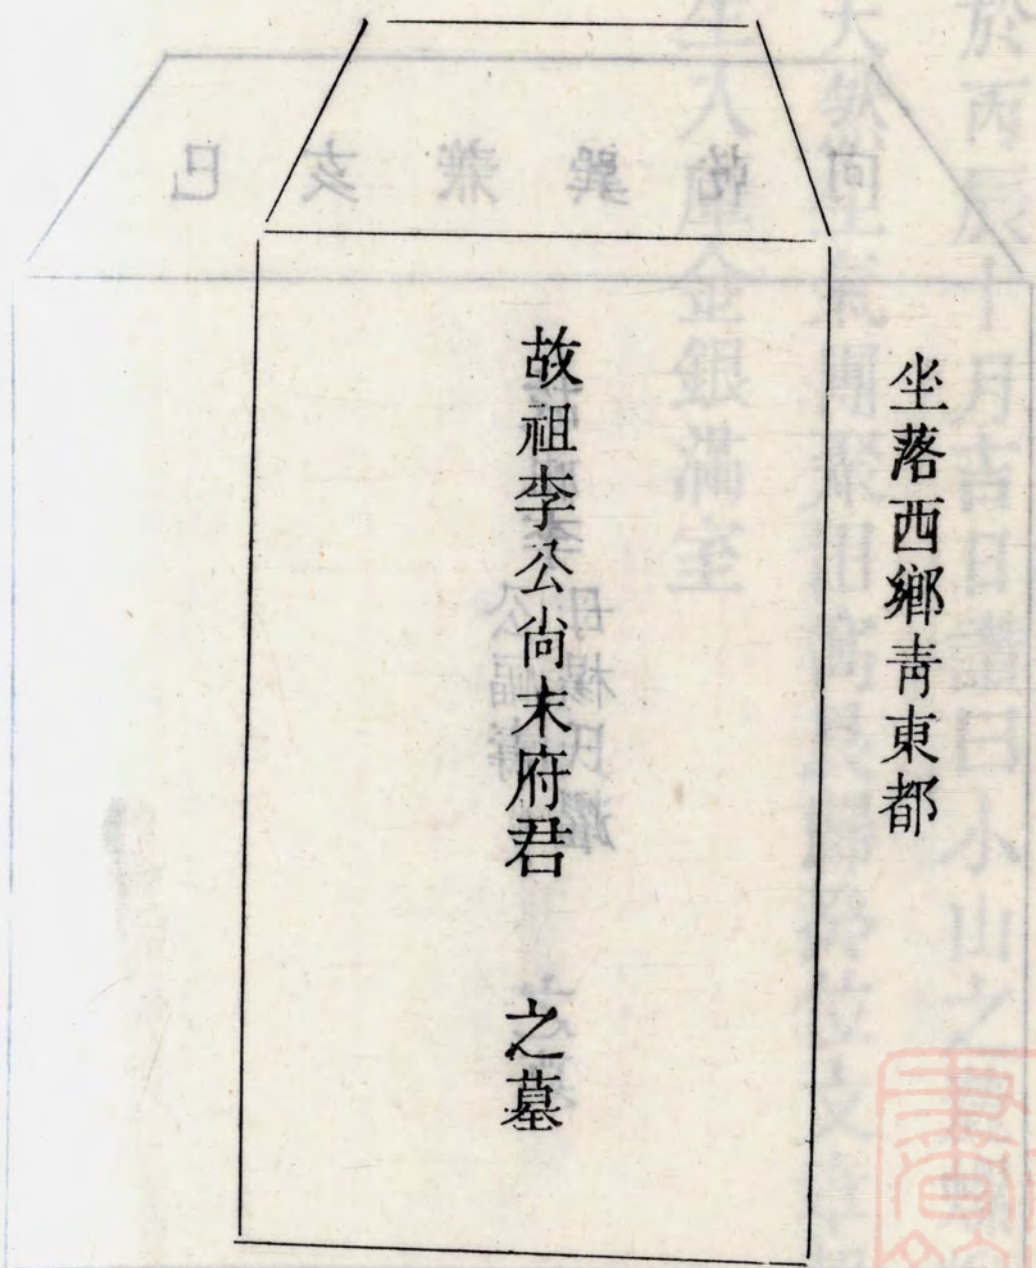 坐落西鄉青東都
故祖李公尚末府君 之墓